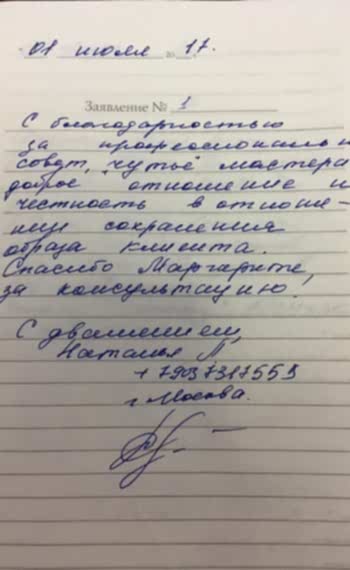 01 июля 20 17.
Заявление № 1
С благодарностью
за профессиональн
совет, "чутьё" мастера
доброе отношение и
честность в отноше-
нии сохранения
образа клиента.
Спасибо Маргарите,
за консультацию!
С уважением,
Наталья Л,
г. Москва.